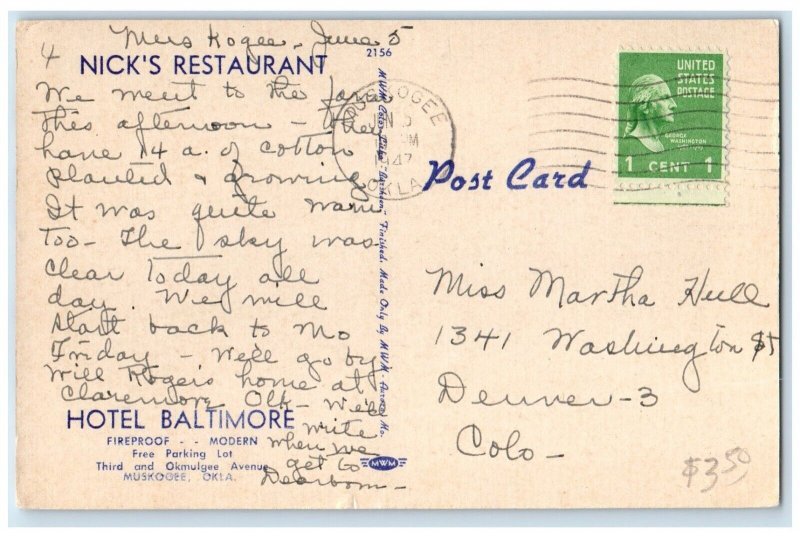 Muskogee, June 5
4
2156
NICK'S RESTAURANT
We went to the farm
this afternoon - they
have 14 a. of cotton
planted & growing
It was quite warm
too - The sky was
clear today all
day. We will
start back to Mo
Friday - We'll go by
Will Rogers home at
Claremore Okl - We'll
write
when we
get to
Dearborn -
HOTEL BALTIMORE
FIREPROOF - - MODERN
Free Parking Lot
Third and Okmulgee Avenue
MUSKOGEE, OKLA.
Finished. Made Only By MWM - Aurora, Mo.
MWM
MUSKOGEE
JUN 5
PM
1947
OKLA
Post Card
UNITED
STATES
POSTAGE
GEORGE
WASHINGTON
1 CENT 1
Miss Martha Hull
1341 Washington St
Denver - 3
Colo -
$3.50